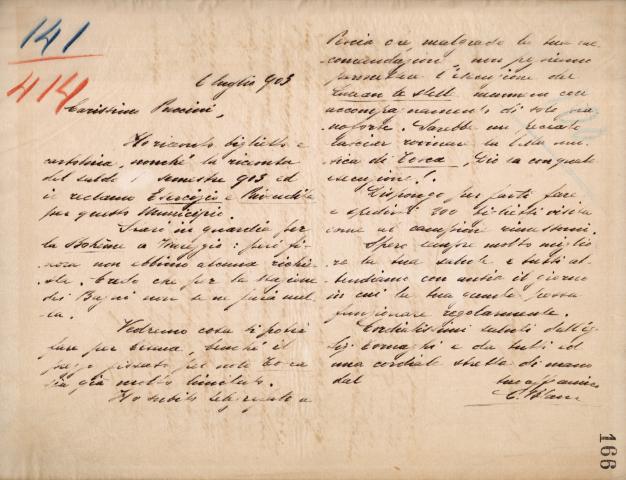 141
414
6 luglio 903
Carissimo Puccini,
Ho ricevuto biglietto e
cartolina, nonchè la ricevuta
del saldo 1° semestre 903 ed
il reclamo Esercizio e Rivendita
per questo Municipio.
Starò in guardia per
la Bohème a Viareggio: però fi-
nora non ebbimo alcuna richie-
sta. Credo che per la stagione
dei Bagni non se ne farà nul-
la.
Vedremo cosa si potrà
fare per Siena, benchè il
già molto limitato.
Ho subito telegrafato a
Pescia che, malgrado la sua rac-
comandazione, non possiamo
permettere l'esecuzione del
Lucean le stelle nemmeno con
accompagnamento di solo pia-
noforte. Sarebbe un peccato
lasciar rovinare la bella mu-
sica di Tosca, Dio sa con quale
esecuzione!.
Dispongo per farti fare
e spedirti 200 biglietti visita
come al campione rimessomi.
Spero sempre molto miglio-
re la tua salute e tutti at-
tendiamo con ansia il giorno
in cui la tua gamba possa
funzionare regolarmente.
Cordialissimi saluti dell'
e da tutti ed
una cordiale stretta di mano
dal
tuo aff amico
C. Blanc
166